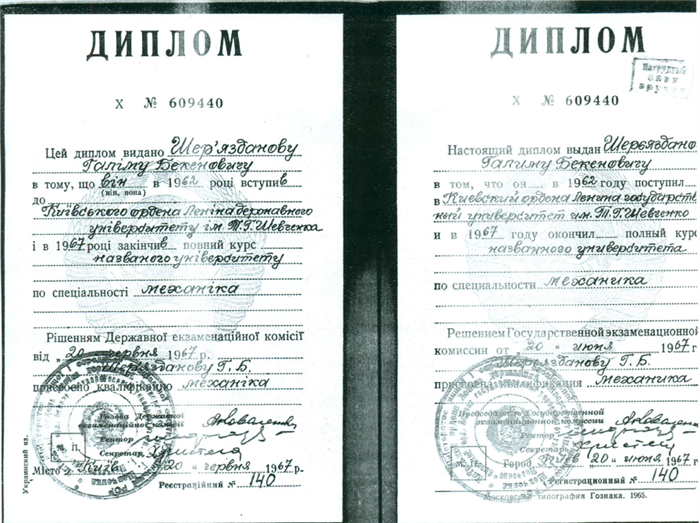 ДИПЛОМ
Х № 609440
Цей диплом видано Шер'язданову
Галіму Бекеновичу
в тому, що він в 1962 році вступив
(він, вона)
до Київського ордена Леніна державного
університету ім. Т.Г. Шевченка
і в 1967 році закінчив повний курс
названого університету
по спеціальності механіка
Рішенням Державної екзаменаційної комісії
від „20 червня 1967 р.
Шеріязданову Г. Б.
присвоєно кваліфікацію механіка
Голова Державної
екзаменаційної комісії
Ректор
Секретар
М. П.
Місто Київ 20 червня 1967 р.
Реєстраційний № 140
Украинский яз.
ДИПЛОМ
Нагрудный
знак
вручен
Х № 609440
Настоящий диплом выдан Шерьяздано
Галиму Бекеновичу
в том, что он в 1962 году поступил
в Киевский ордена Ленина государств
ный университет им. Т.Г. Шевченко
и в 1967 году окончил полный курс
названного университета
по специальности механика
Решением Государственной экзаменационной
комиссии от „20" июня 1967 г
Шерьязданову Г. Б.
присвоена квалификация механика
Председатель Государственной
экзаменационной комиссии
Ректор
Секретарь
Город Киев 20 июня 1967 г
Регистрационный № 140
Московская типография Гознака. 1965.